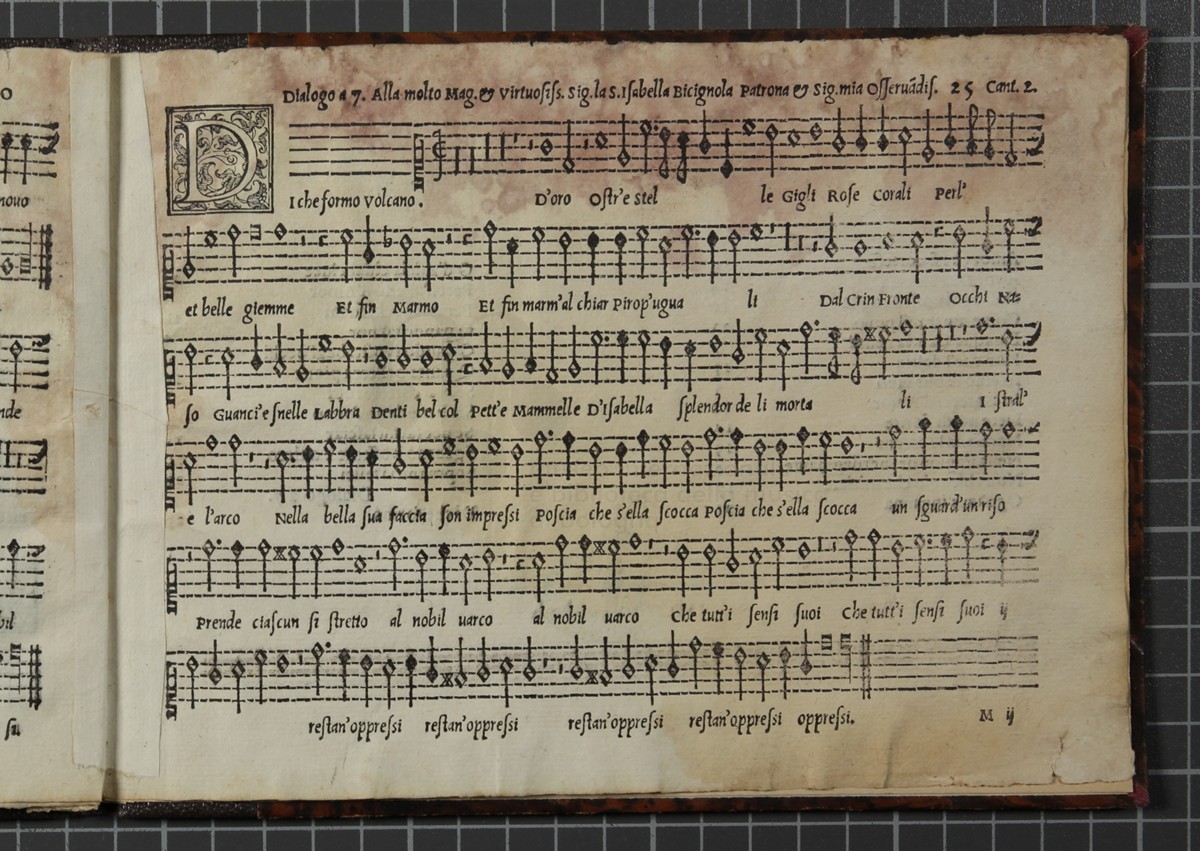 Dialogo a 7. Alla molto Mag. & Virtuosiss. Sig. la S. Isabella Bicignola Patrona & Sig. mia Osseruãdis. 25 Cant. 2.
D I che formo volcano. D'oro Ostr'e stel le Gigli Rose Corali Perl'
et belle giemme Et fin Marmo Et fin marm'al chiar Pirop'ugua li Dal Crin Fronte Occhi Na=
so Guanci'e snelle Labbra Denti bel col Pett'e Mammelle D'Isabella splendor de li morta li I stral'
e l'arco Nella bella sua faccia son impressi Poscia che s'ella scocca Poscia che s'ella scocca un sguard'un riso
Prende ciascun si stretto al nobil uarco al nobil uarco Che tutt'i sensi suoi Che tutt'i sensi suoi ij
restan'oppressi restan'oppressi restan'oppressi restan'oppressi oppressi.
M ij